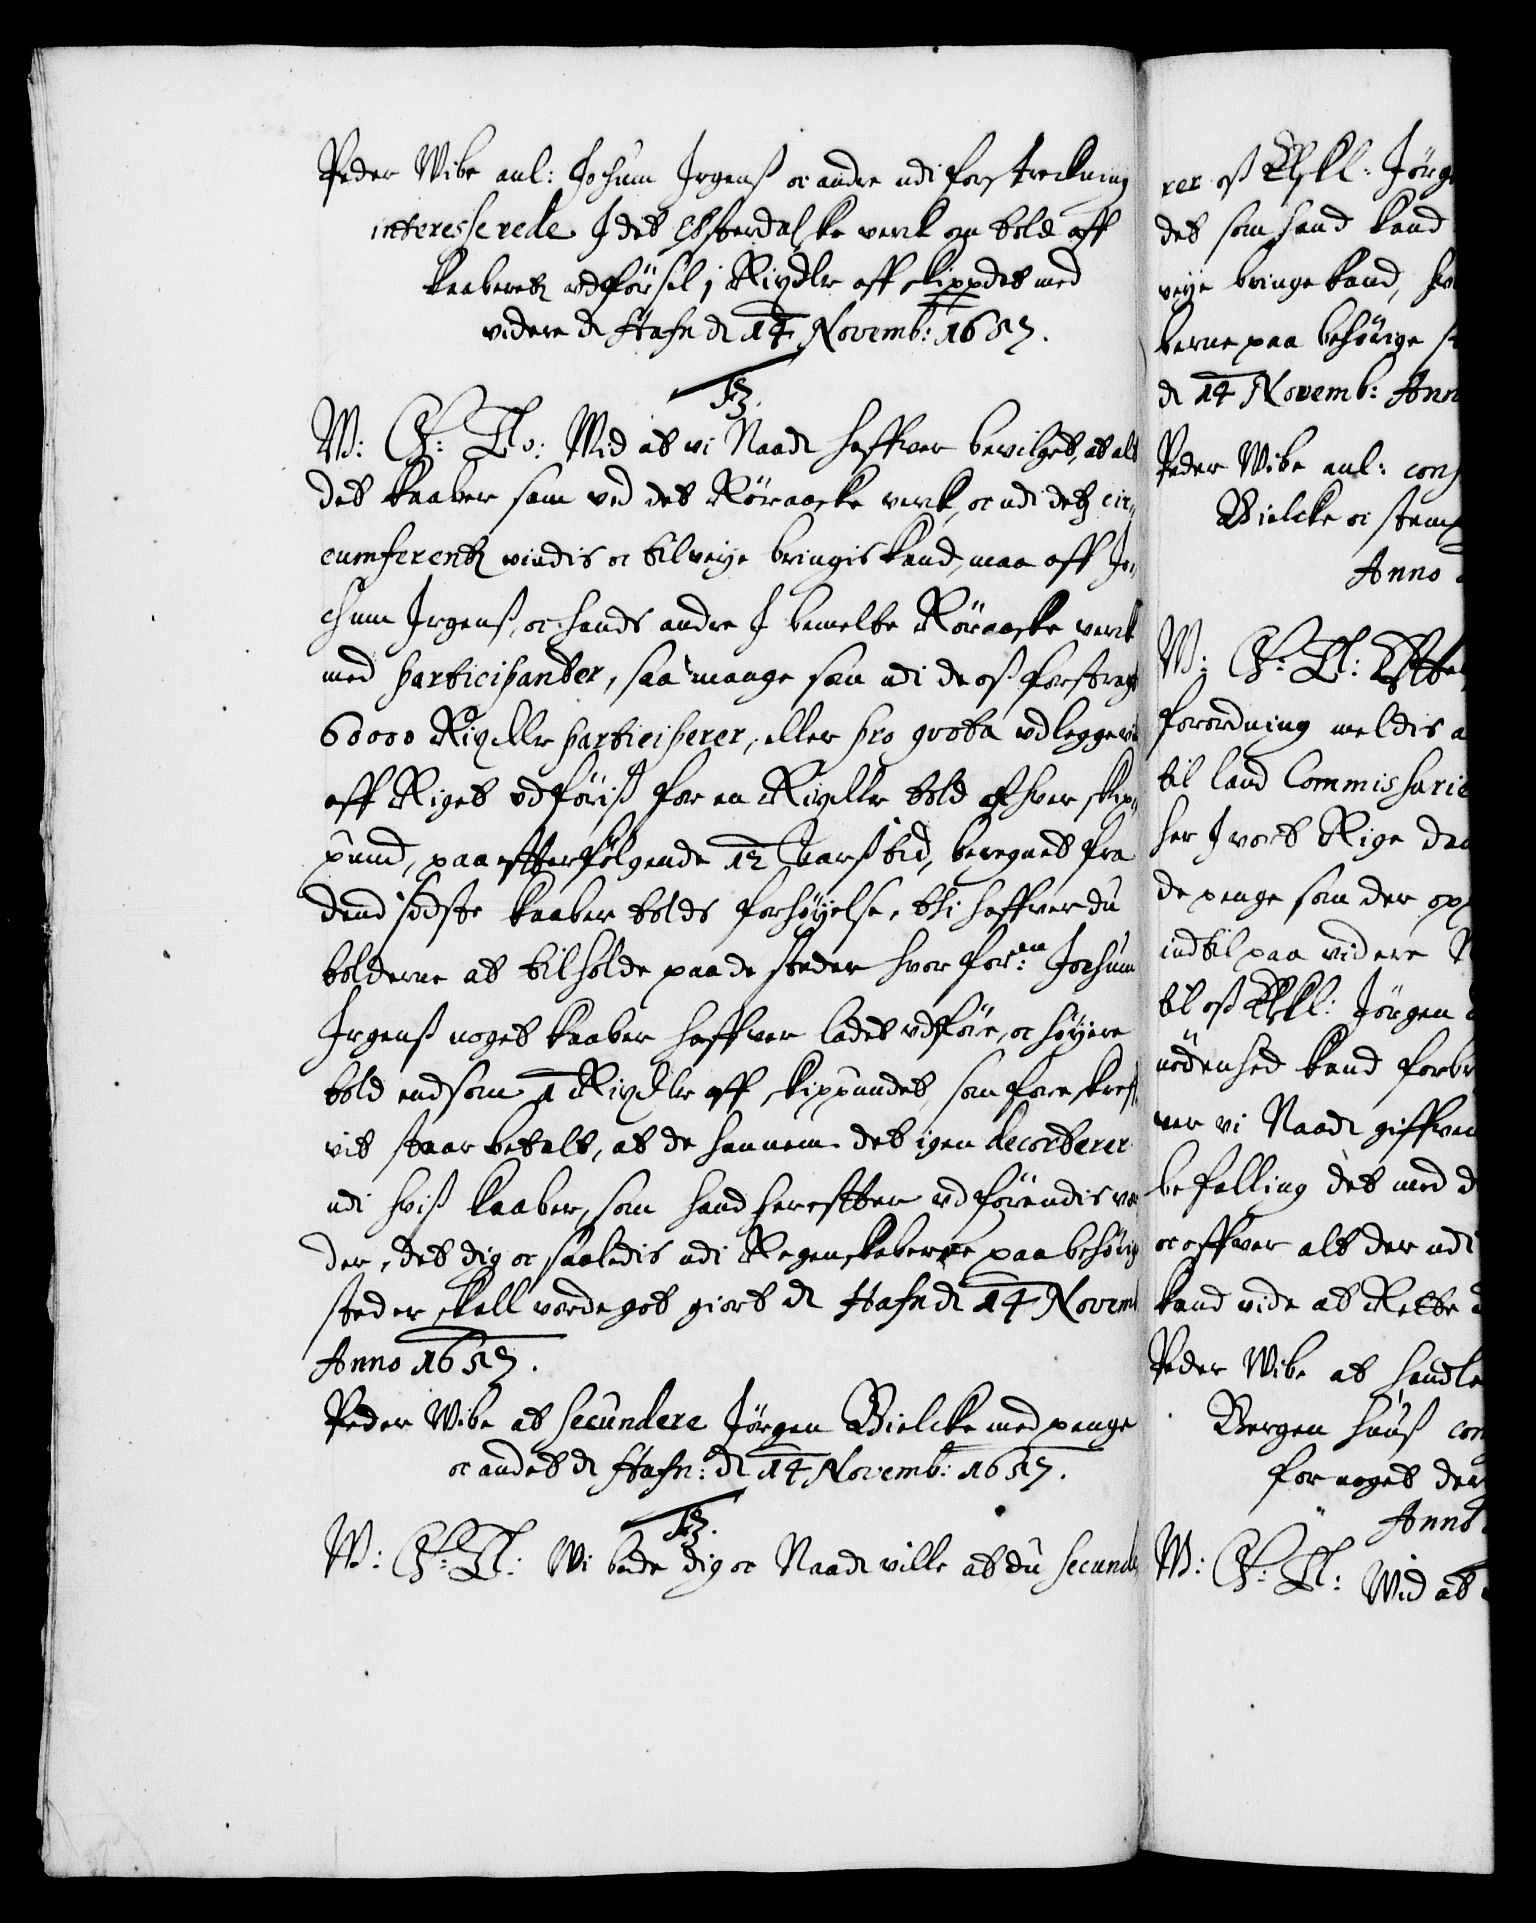 Peder Wibe anl: Jochum Irgenß oc andre udi forstreckning
interesserede I det Østerdalske verck om told aff
kaaberetz udførsel 1 Rixdlr aff skippdet med
videre dt Hafn dt 14 Novemb: 1657.
W: G: T: Wid at vi Naadt haffver bevilget, at alt
det kaaber som ved det Röraaske verck, oc udi detz cir„
cumferentz vindis oc tilveije bringis kand, maa aff Jo„
chum Irgenß, oc hands andre I bemelte Röraaske verck
med participanter, saa mange som udi de oß forstragte
60000 Rixdlr participerer, eller pro qvota udlegger
aff Riget udføris for en Rixdlr told af hver skip„
pund, paa effterfølgende 12 Aarß tid, beregnet fra
dend sidste kaaber tolds forhøyelse, thi haffver du
tolderne at tilholde paa de steder hvor for:ne Jochum
Irgenß noget kaaber haffver ladet udføre, oc høyere
told end som 1 Rixdlr aff skippundet, som foreskref„
vit staar betalt, at de hannem det igen decorterer
udi hviß kaaber, som hand hereffter udførendis vor
der, det dig oc saaledis udi Regenskaberne paa behørig
steder skall vorde got giort dt Hafn dt 14 Novemb
Anno 1657.
Peder Wibe at secundere Jörgen Bielcke med penge
oc andet dt Hafn: dt 14 Novemb: 1657.
W: G: T: Wi bede dig oc Naadt ville at du secunde
rer oß Elskl: Jörg
det som hand kand
veije bringe kand, hv
berne paa behørige st
dt 14 Novemb: Ann
Peder Wibe anl: con
Bielcke oc stem
Anno
W: G: T: Effte
forordning meldis a
til land Commissarie
her I vort Rige
de penge som der op
indtil paa videre
til oß Elskl: Jörgen
nödenhed kand forbr
ver vi Naadt giffven
befalling det med d
oc effver alt der udi
kand vide at Rette
Peder Wibe at handle
Bergen huuß con
for noget der
Anno
W: G: T: Wid at